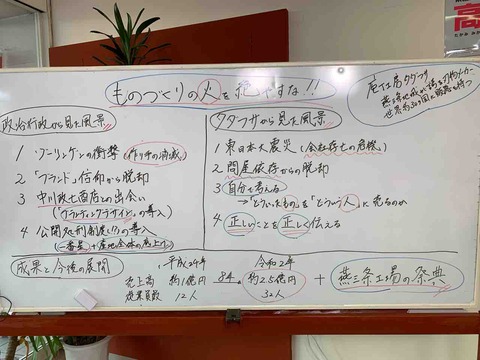 ものづくりの火を絶やすな!!
庖丁工房タダフサ
世界約30ヶ国に販路を持つ
政治行政から見た風景
1 ゾーリンゲンの衝撃(作り手の消滅)
2 「ブランド」信仰から脱却
3 中川政七商店との出会い
(「ブランディングデザイン」の導入)
4 公開処刑制度(!?)の導入
(一番星→産地全体の底上げ)
タダフサから見た風景
1 東日本大震災(会社存亡の危機)
2 問屋依存からの脱却
3 自分で考える
→「どういったもの」を「どういう人」に売るのか
4 正しいことを正しく伝える
成果と今後の展開
平成24年
令和2年
売上高 約1億円 8年 約2.5億円
従業員数 12人 32人
+ 燕三条工場の祭典